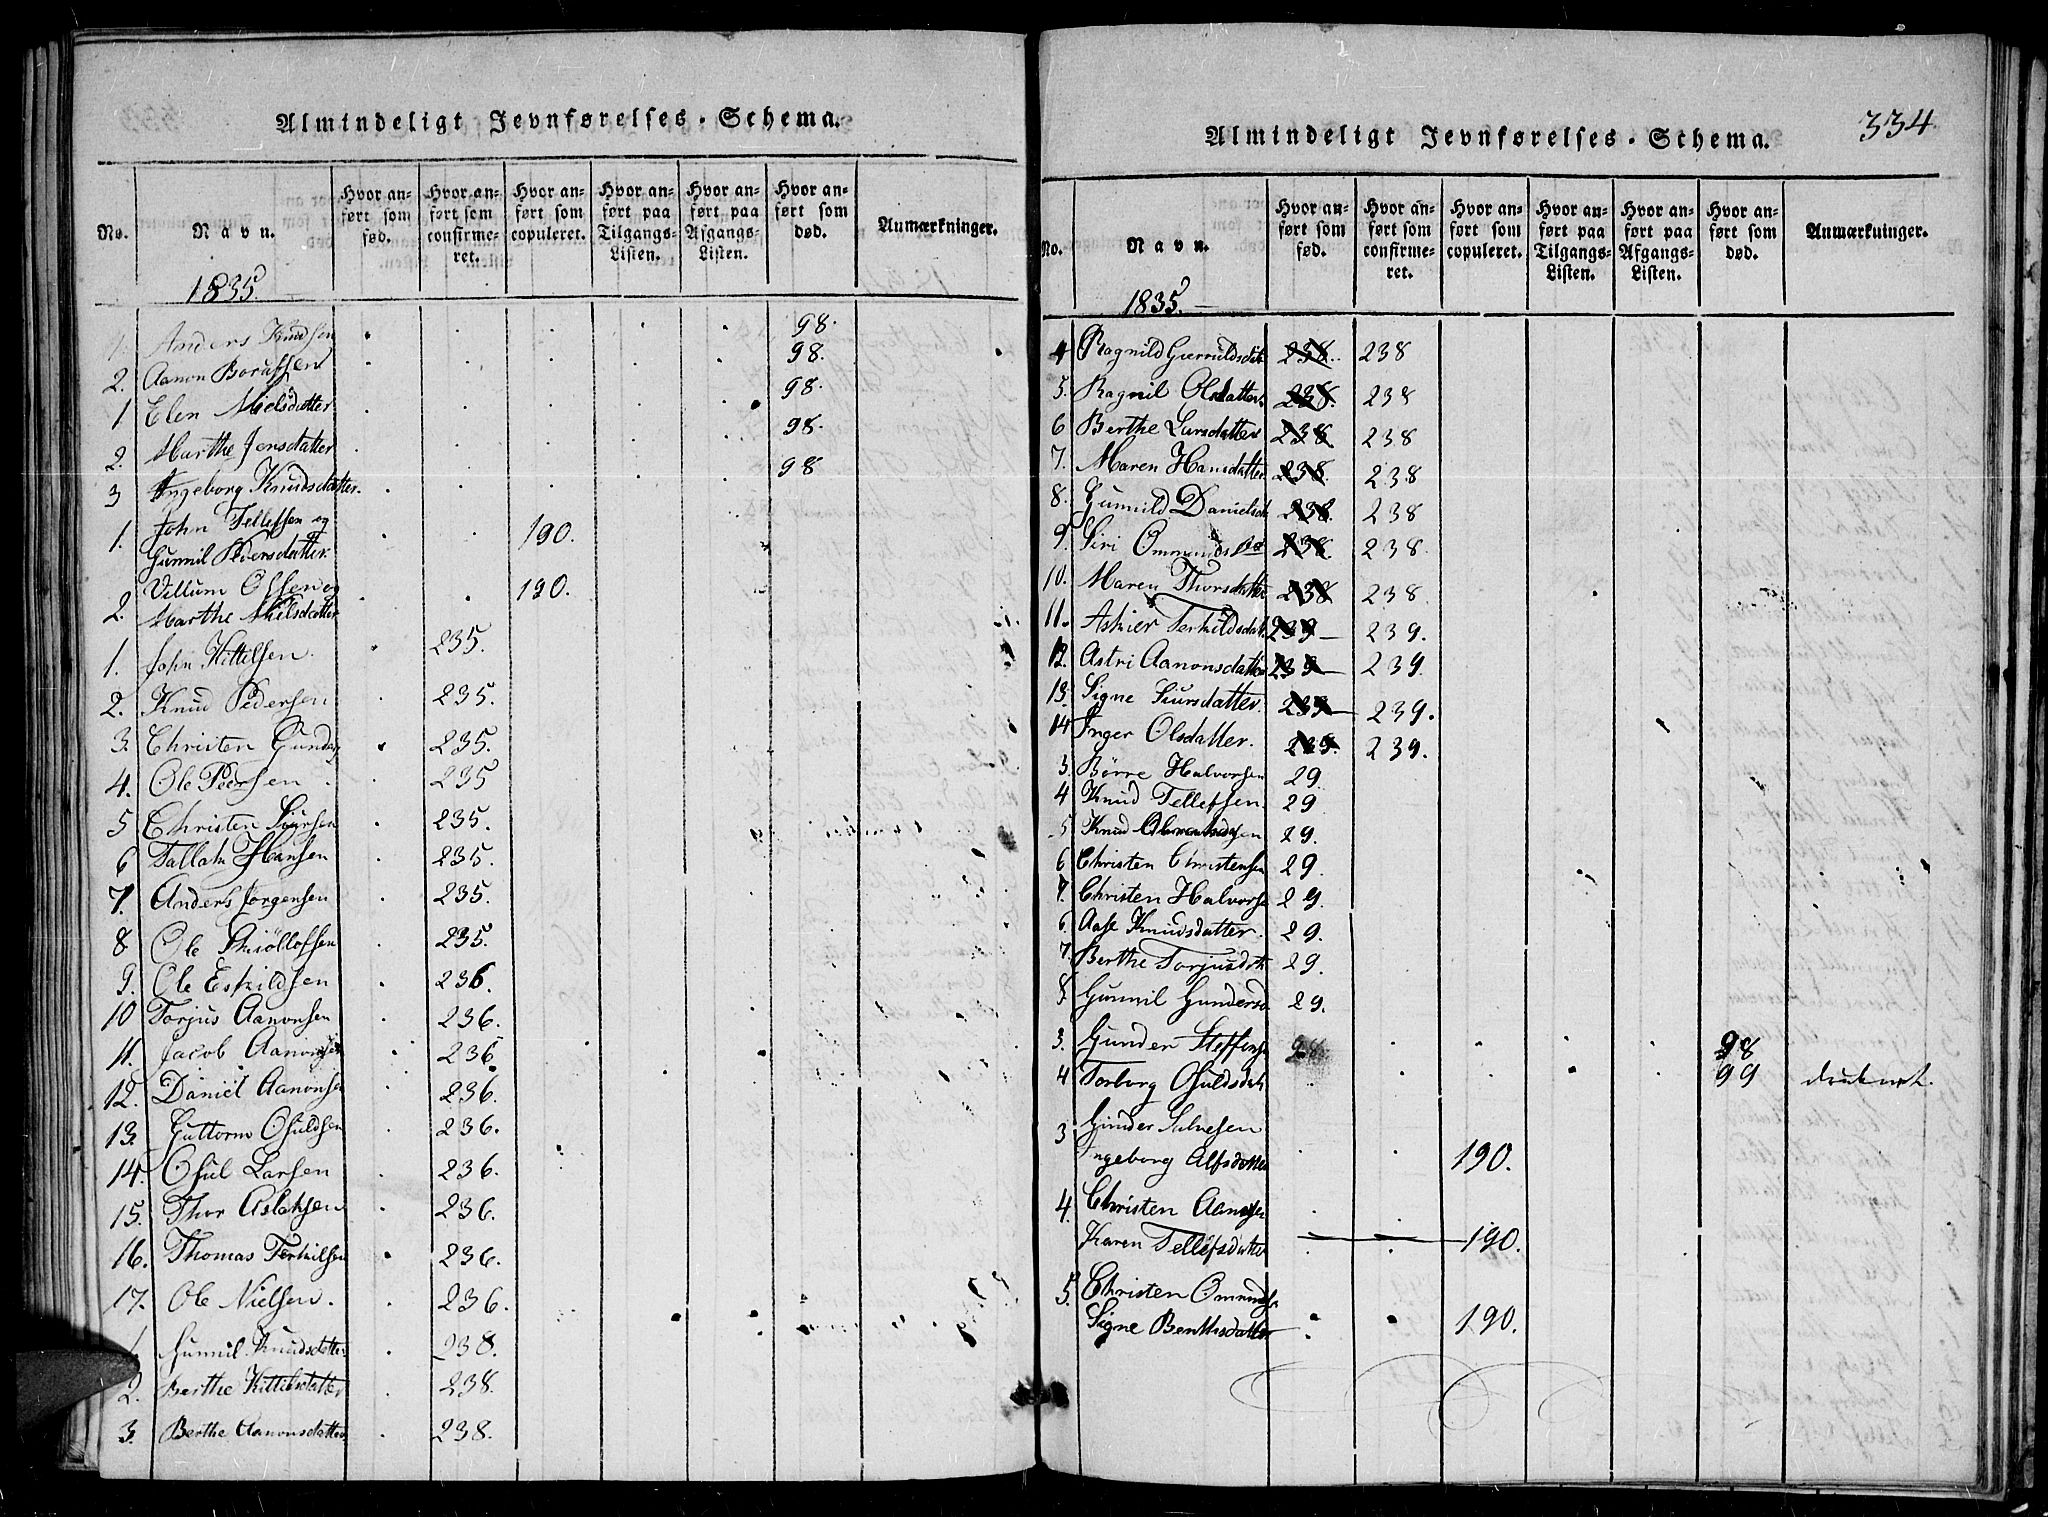 Almindeligt Jevnførelses-Schema.
No. Navn. Hvor anført som fød. Hvor anført som confirmeret. Hvor anført som copuleret. Hvor anført paa Tilgangs-Listen. Hvor anført paa Afgangs-Listen. Hvor anført som død. Anmærkninger.
1835.
1. Anders Knudsen 98.
2. Aanon 98.
1 Elen Nielsdatter 98.
2. Marthe Jensdatter 98.
3 Ingeborg Knudsdatter. 98
1. John Tellefsen og
Gunnil Pedersdatter. 190.
2. Villum Olssen og
Marthe Nielsdatter 190.
1. John Kittelsen. 235.
2. Knud Pedersen 235.
3. Christen 235.
4. Ole Peersen 235
5 Christen Siursen 235.
6 Tallak Hansen 235.
7. Anders Jørgensen 235.
8 Ole 235.
9. Ole Eskildsen 236.
10 Torjus Aanonsen 236.
11. Jacob Aanonsen 236.
12. Daniel Aanonsen 236.
13. Guttorm Osuldsen 236.
14. Osul Larsen 236.
15. Thor Aslaksen 236.
16. Thomas Terkilsen 236.
17. Ole Nielsen. 236.
1. Gunnil Knudsdatter 238.
2. Berthe Kittilsdatter 238.
3. Berthe Aanonsdatter 238.
334.
Almindeligt Jevnførelses-Schema.
No. Navn. Hvor anført som fød. Hvor anført som confirmeret. Hvor anført som copuleret. Hvor anført paa Tilgangs-Listen. Hvor anført paa Afgangs-Listen. Hvor anført som død. Anmærkninger.
1835.
4 Ragnild 238. 238
5. Ragnil Olsdatter 238. 238
6 Berthe Larsdatter 238 238
7. Maren Hansdatter 238. 238
8. Gunnild 238. 238
9. Siri 238. 238.
10. Maren Thorsdatter 238 238.
11. 239 239.
12. Astri Aanonsdatter 239 239.
13. Signe Siursdatter. 239 239.
14 Inger Olsdatter. 239. 239.
3. Børre Halvorsen 29.
4 Knud Tellefsen. 29
5 Knud 29.
6 Christen Christensen 29.
7. Christen Halvorse 29.
6. Aase Knudsdatter. 29.
7. Berthe 29.
8 Gunnil 29.
3. Gunder 28. 98
4 Torborg 99
3 Gunder Salvesen
Ingeborg Alfsdatter 190.
4. Christen
Karen Tellefsdatter 190.
5. Christen
Signe 190.